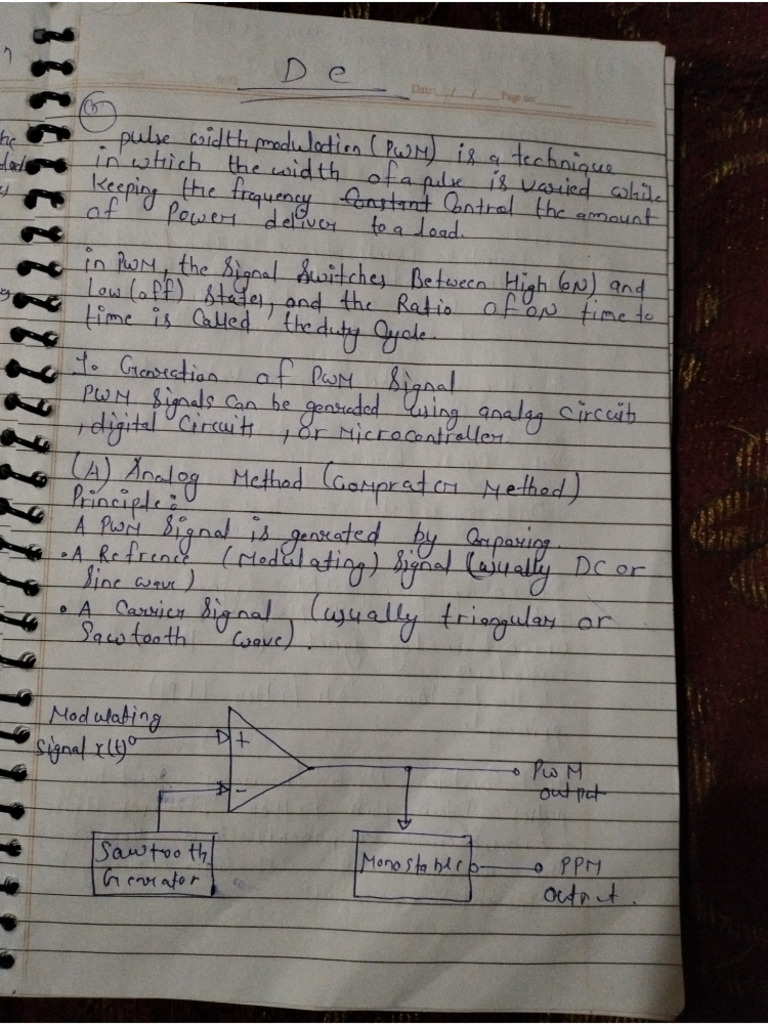 D C
Date: / / Page no:
pulse width modulation (PWM) is a technique
in which the width of a pulse is varied while
keeping the frequency Constant Control the amount
of Power deliver to a load.
in PWM, the Signal Switches Between High (ON) and
low (off) States, and the Ratio of ON time to
time is Called the duty Cycle.
1. Genration of PWM Signal
PWM Signals Can be genrated using analog circuits
, digital Circuits , or Microcontroller
(A) Analog Method (Comprator Method)
Principle :
A PWM Signal is genrated by Comparing.
• A Refrence (Modulating) Signal (usually DC or
Sine wave)
• A Carrier Signal (usually triangular or
Sawtooth wave).
Modulating
Signal x(t)
+
-
PWM
output
Sawtooth
Generator
Monostable
PPM
output.